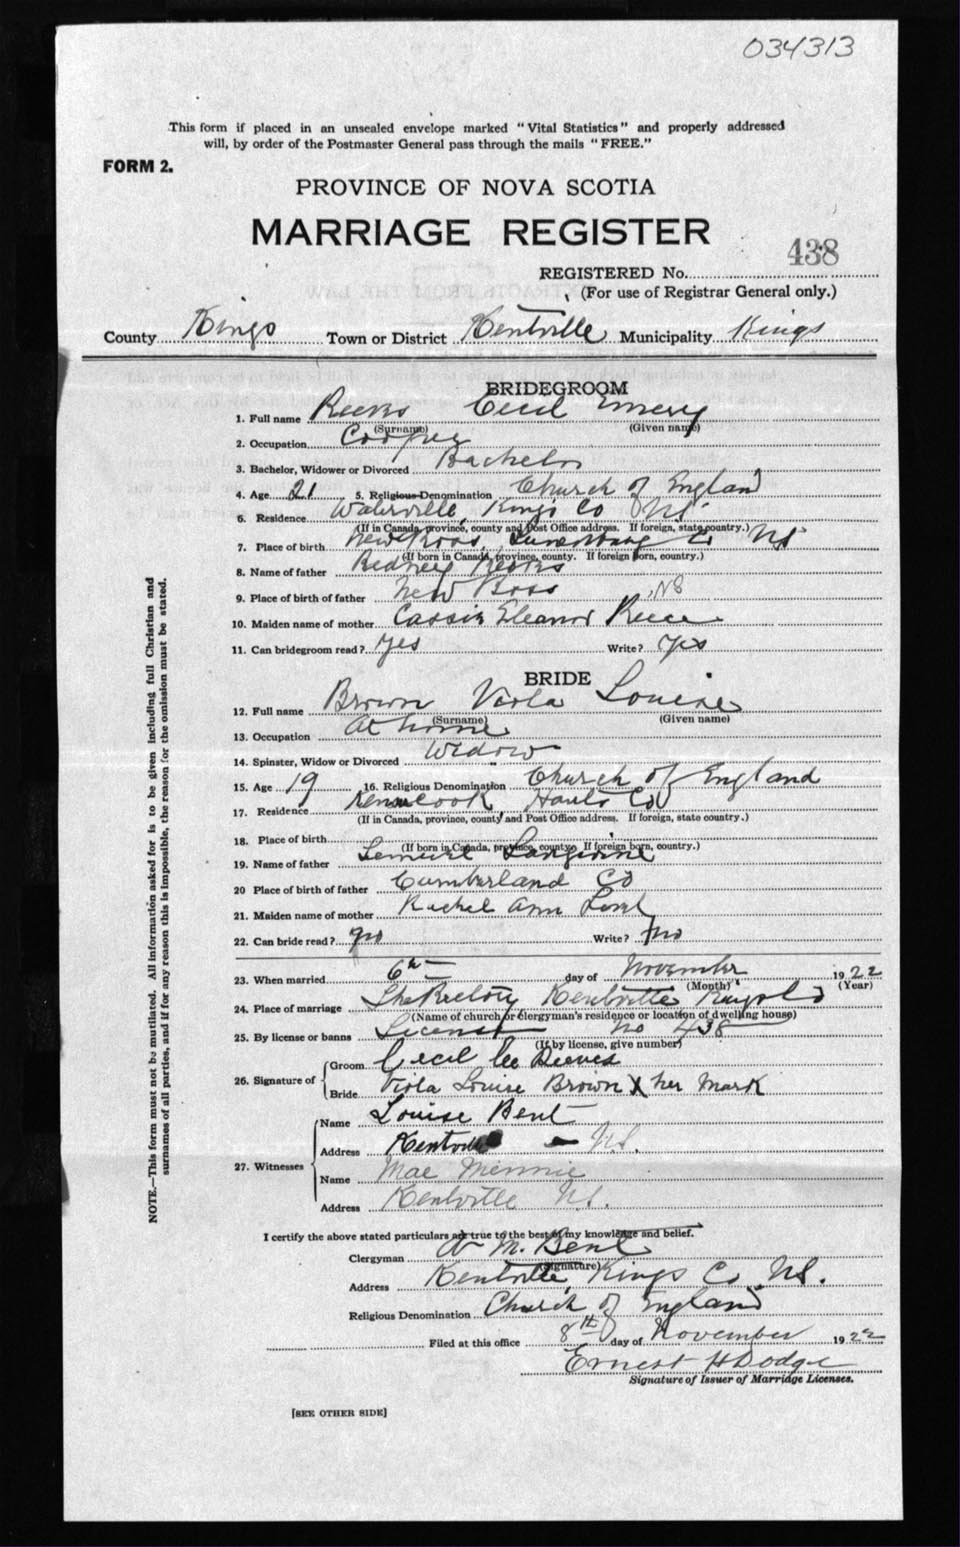 034313
This form if placed in an unsealed envelope marked "Vital Statistics" and properly addressed
will, by order of the Postmaster General pass through the mails "FREE."
FORM 2.
PROVINCE OF NOVA SCOTIA
MARRIAGE REGISTER
438
REGISTERED No.
(For use of Registrar General only.)
County Kings Town or District Kentville Municipality Kings
BRIDEGROOM
1. Full name Reeves Cecil Emery
(Surname) (Given name)
2. Occupation Cooper
3. Bachelor, Widower or Divorced Bachelor
4. Age 21 5. Religious Denomination Church of England
6. Residence Waterville, Kings Co NS
(If in Canada, province, county and Post Office address. If foreign, state country.)
7. Place of birth New Ross, Lunenburg Co NS
(If born in Canada, province, county. If foreign born, country.)
8. Name of father Reeves
9. Place of birth of father New Ross, NS
10. Maiden name of mother Cassie Eleanor Reece
11. Can bridegroom read? Yes Write? Yes
BRIDE
12. Full name Brown Viola Louise
(Surname) (Given name)
13. Occupation At home
14. Spinster, Widow or Divorced Widow
15. Age 19 16. Religious Denomination Church of England
17. Residence Kennecook Hants Co
(If in Canada, province, county and Post Office address. If foreign, state country.)
18. Place of birth
(If born in Canada, province, county. If foreign born, country.)
19. Name of father Lemuel
20 Place of birth of father Cumberland Co
21. Maiden name of mother Rachel Ann
22. Can bride read? no Write? no
23. When married 6th day of November 1922
(Month) (Year)
24. Place of marriage The Rectory Kentville
(Name of church or clergyman's residence or location of dwelling house)
25. By license or banns License no 438
(If by license, give number)
26. Signature of
Groom Cecil Reeves
Bride Viola Louise Brown X her mark
27. Witnesses
Name Louise Bent
Address Kentville N.S.
Name Mae Minnie
Address Kentville N.S.
I certify the above stated particulars are true to the best of my knowledge and belief.
Clergyman A M. Bent
(Signature)
Address Kentville, Kings Co. N.S.
Religious Denomination Church of England
Filed at this office 8th day of November 1922
Ernest H Dodge
Signature of Issuer of Marriage Licenses.
[SEE OTHER SIDE]
NOTE.—This form must not be mutilated. All information asked for is to be given including full Christian and
surnames of all parties, and if for any reason this is impossible, the reason for the omission must be stated.